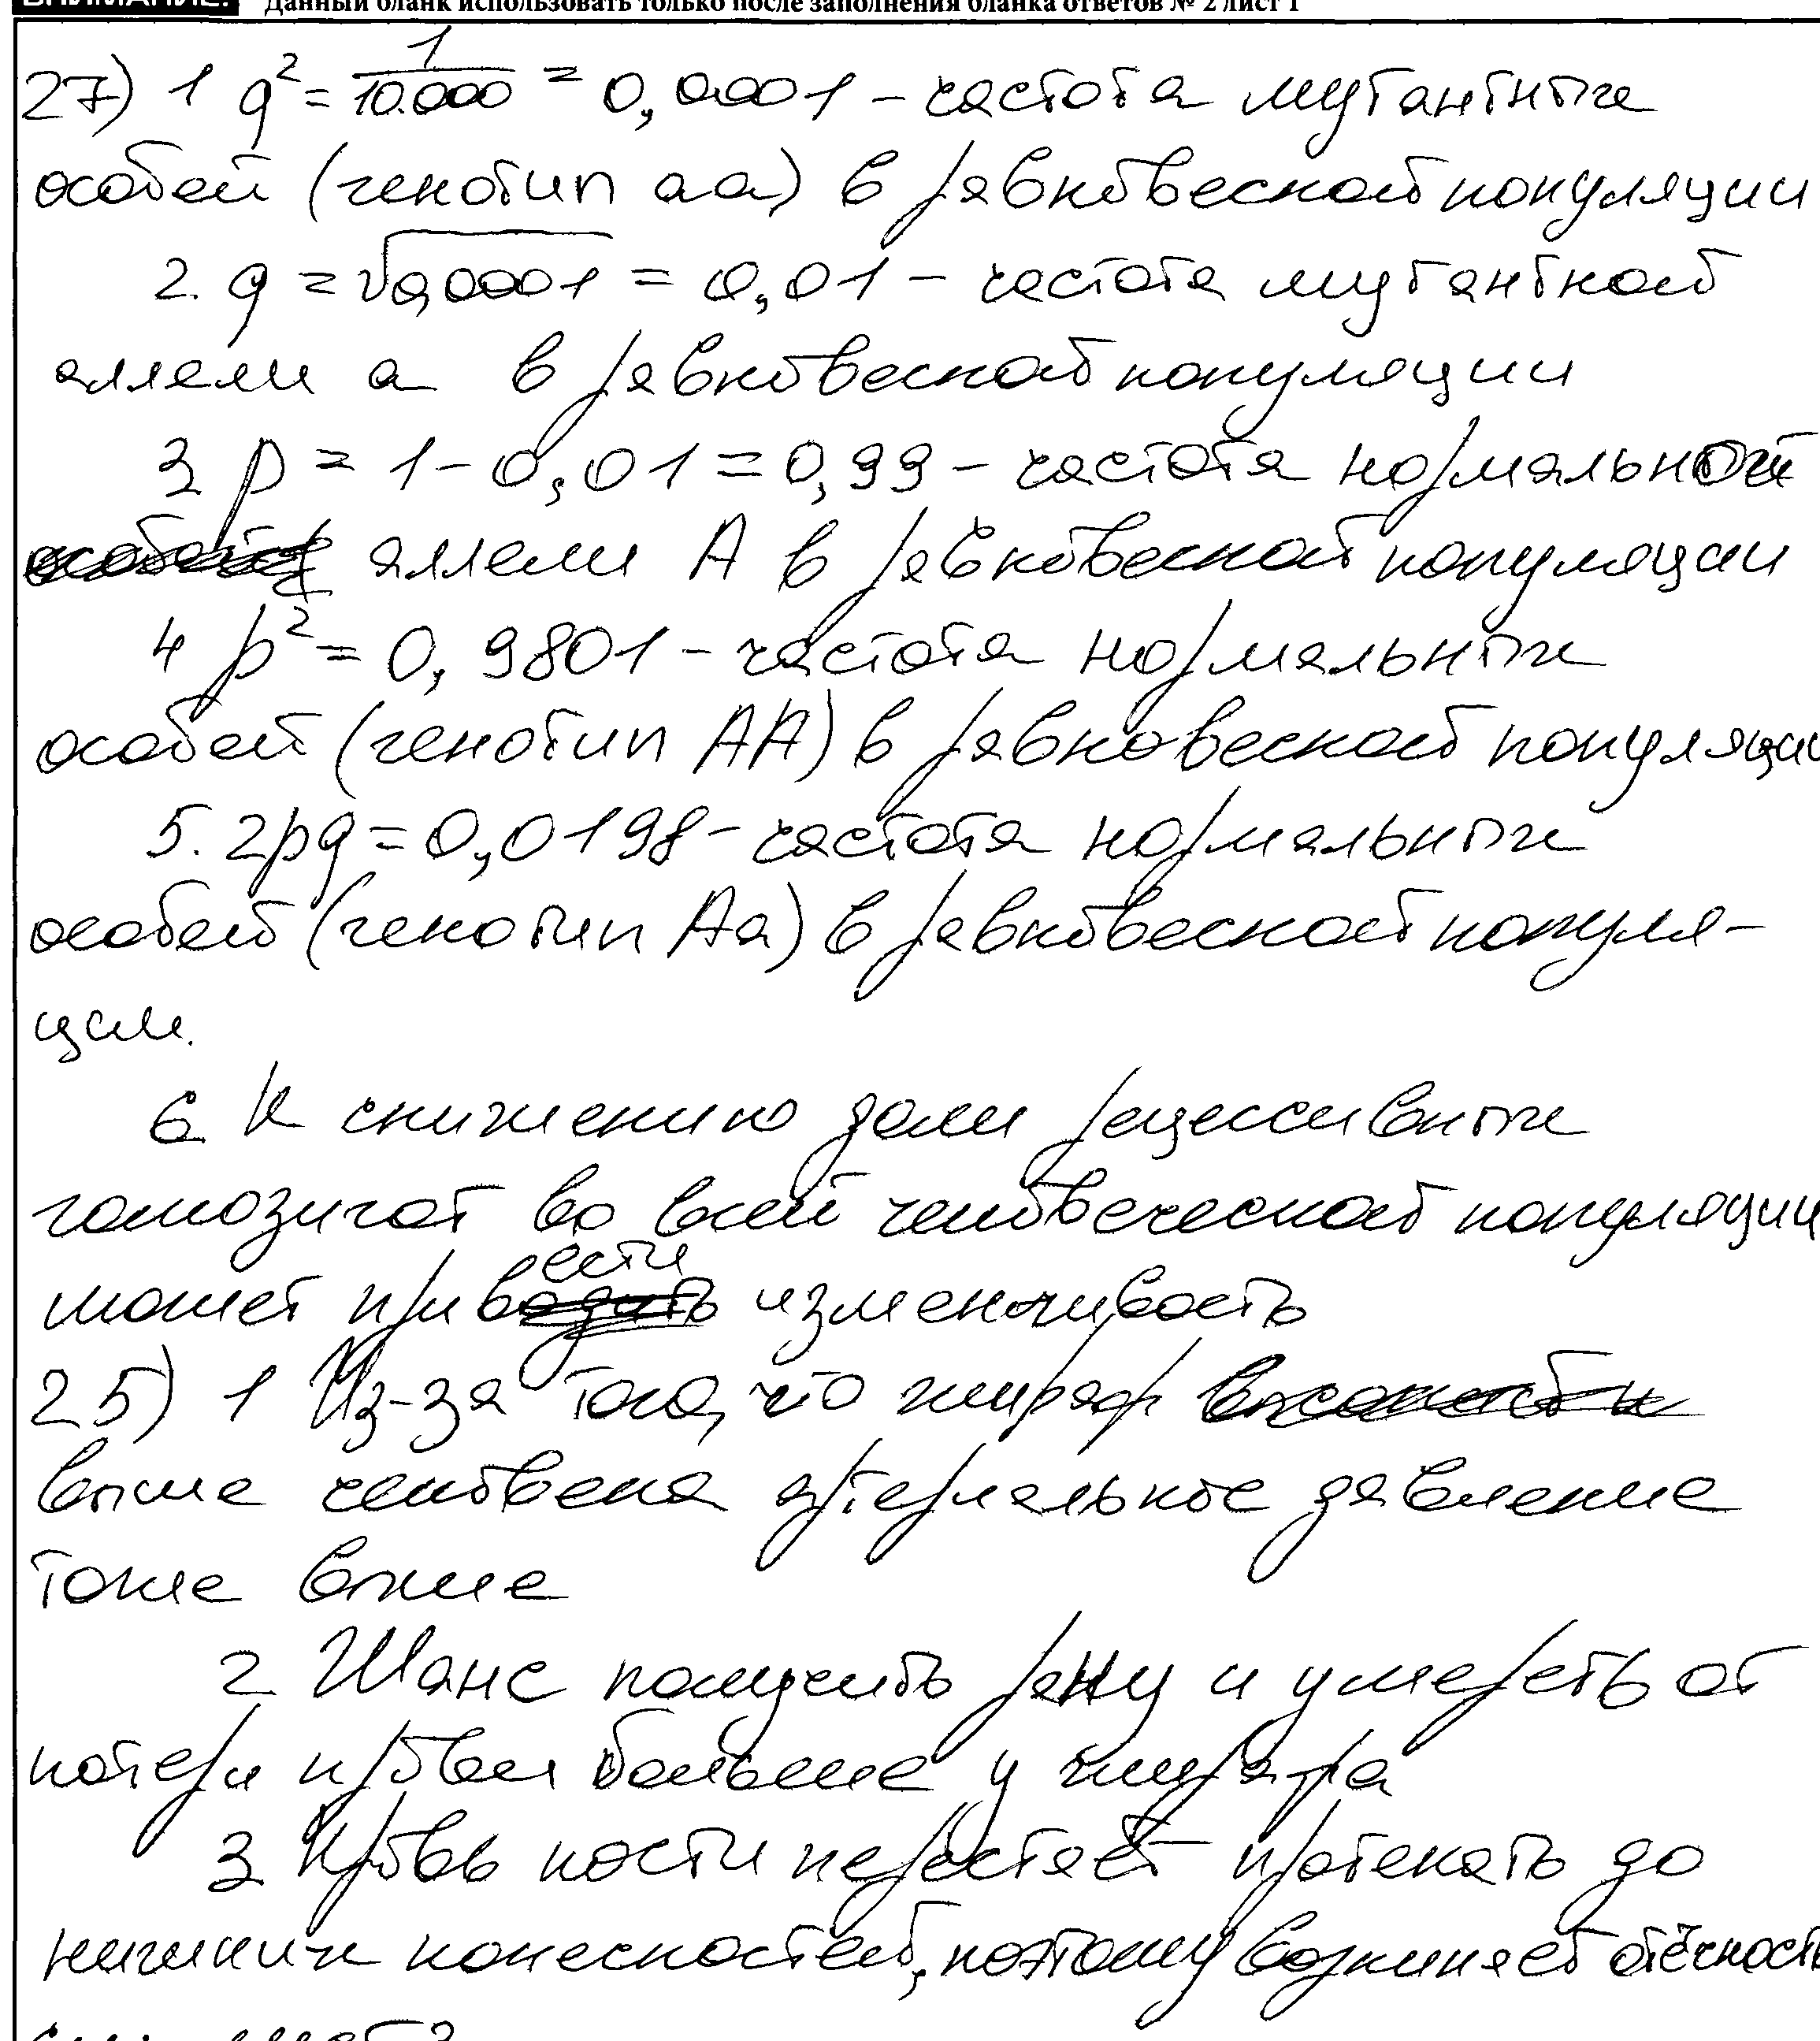 ВНИМАНИЕ! Данный бланк использовать только после заполнения бланка ответов № 2 лист 1
27) 1 q² = 1/10.000 = 0,0001 – частота мутантных
особей (генотип аа) в равновесной популяции
2. q = √0,0001 = 0,01 – частота мутантной
аллели а в равновесной популяции
3 p = 1 – 0,01 = 0,99 – частота нормальной
аллели А в равновесной популяции
4 p² = 0,9801 – частота нормальных
особей (генотип АА) в равновесной популяции
5. 2pq = 0,0198 – частота нормальных
особей (генотип Аа) в равновесной популя-
ции.
6 К снижению доли рецессивных
гомозигот во всей человеческой популяции
может привести изменчивость
25) 1 Из-за того, что жираф
выше человека артериальное давление
тоже выше
2 Шанс получить рану и умереть от
потери крови больше у жирафа
3 Кровь почти перестаёт протекать до
нижних конечностей, поэтому возникает отёчность